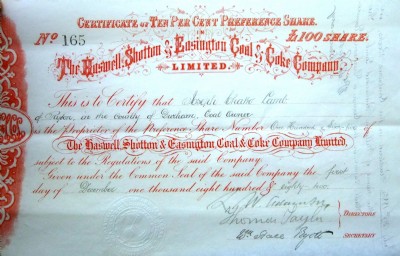 CERTIFICATE OF TEN PER CENT PREFERENCE SHARE.
IN
No 165 £100 SHARE.
The Haswell, Shotton & Easington Coal & Coke Company,
LIMITED.
This is to Certify that
of in the County of Durham, Coal Owner
is the Proprietor of the Preference Share Number One Hundred & sixty five of
The Haswell, Shotton & Easington Coal & Coke Company Limited,
subject to the Regulations of the said Company.
Given under the Common Seal of the said Company the first
day of December one thousand eight hundred & eighty two.
Thomas Taylor
DIRECTORS
SECRETARY